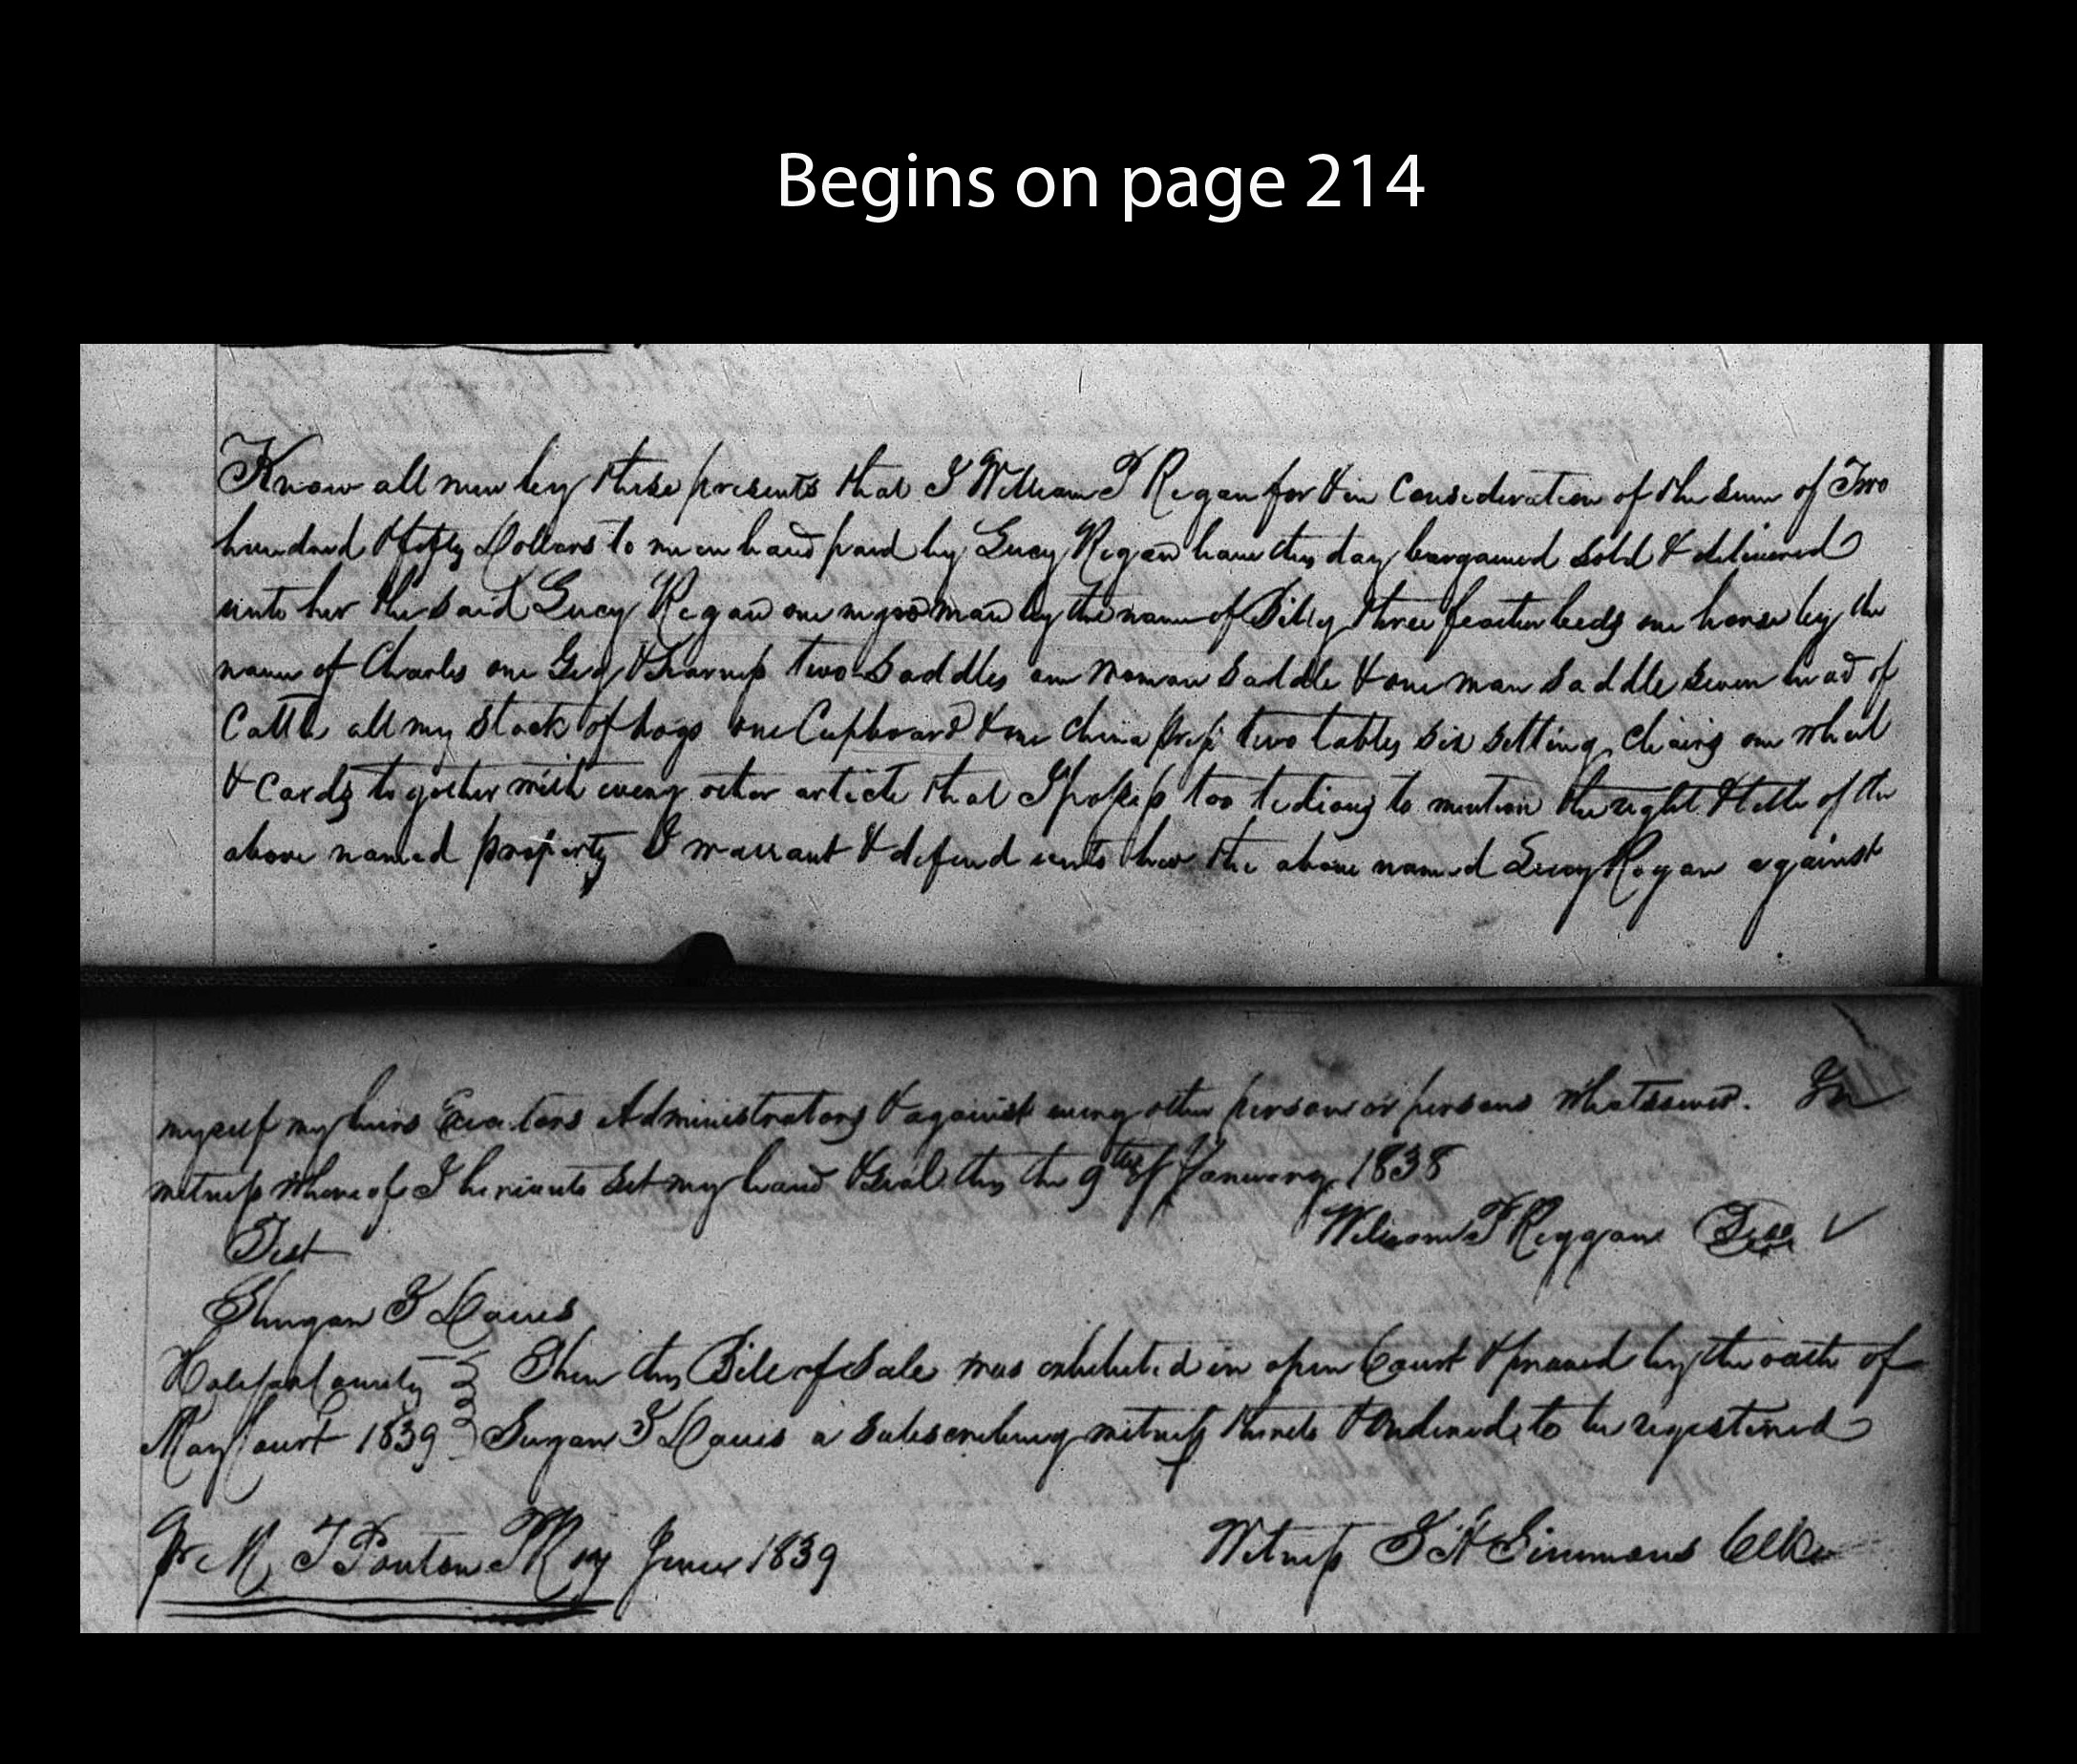 Begins on page 214
Know all men by these presents that I William T Regan for & in Consideration of the sum of Two
hundred & fifty Dollars to me in hand paid by Lucy Regan have this day bargained sold & delivered
unto her the said Lucy Regan one negro man by the name of Billy three feather beds one horse by the
name of Charles one Gig & harness two Saddles one woman saddle & one man saddle seven head of
Cattle all my stock of hogs one Cupboard & one china press two tables six setting chairs one wheel
& cards together with every other article that I possess too tedious to mention the right & title of the
above named property I warrant & defend unto her the above named Lucy Regan against
myself my heirs Executors Administrators & against every other person or persons whatsoever. In
witness whereof I hereunto set my hand & seal this the 9th of January 1838
William T Reggan Seal
Test
Shugan T Davis
Halifax County Then this Bill of Sale was exhibited in open Court & proved by the oath of
May Court 1839 Sugan T Davis a subscribing witness thereto & Ordered to be registered
Witness S H Simmons Clk
Pr M T Ponton P Reg June 1839